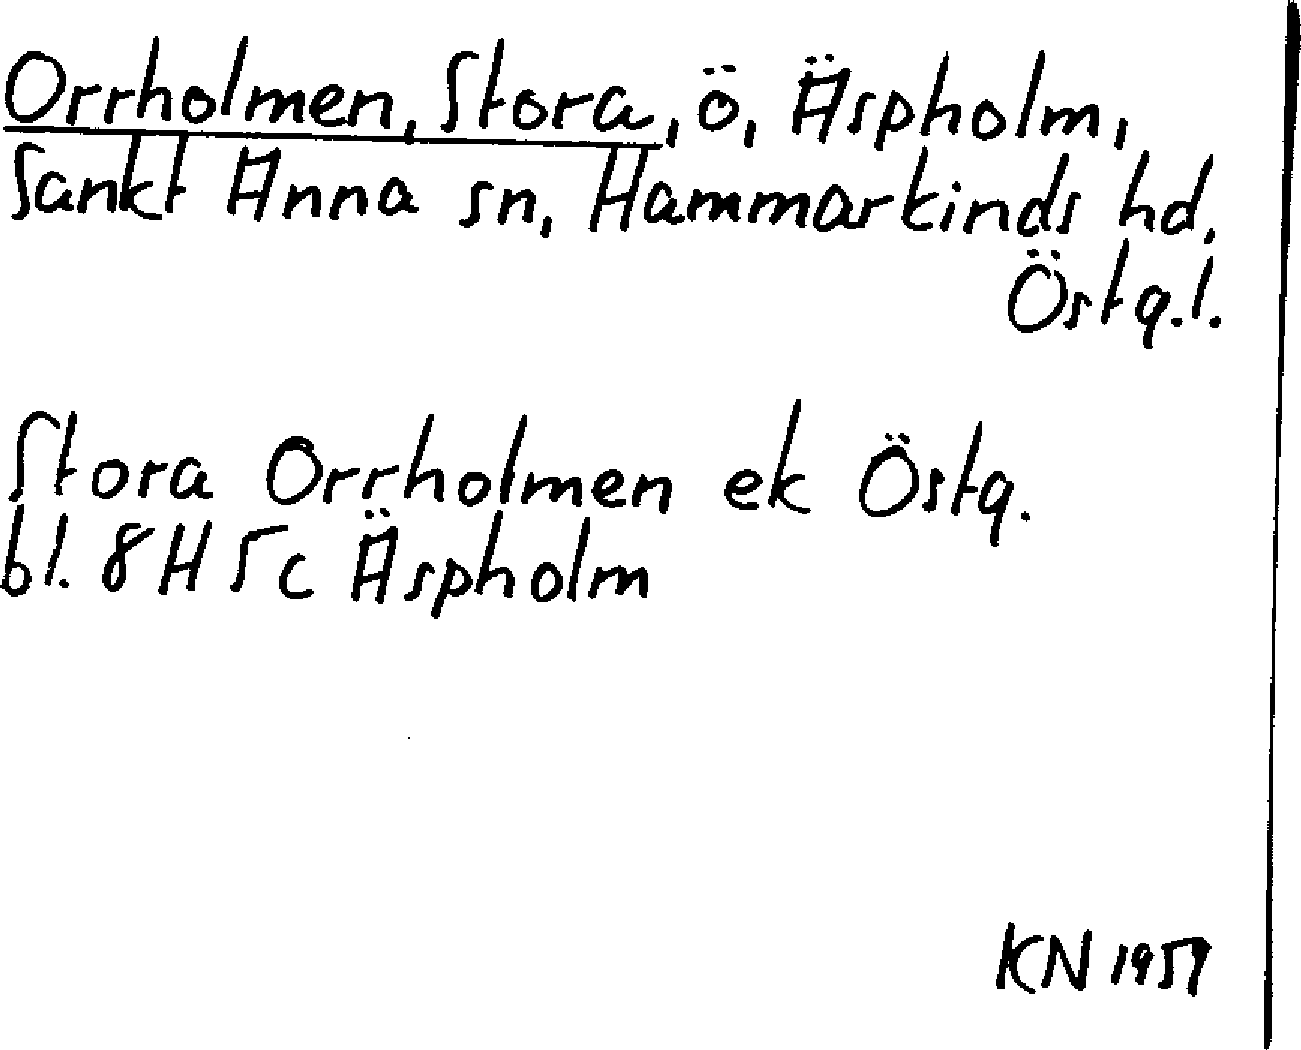 Orrholmen, Stora, ö, Äspholm,
Sankt Anna sn, Hammarkinds hd,
Östg.l.
Stora Orrholmen ek Östg.
bl. 8H 5c Äspholm
KN 1959